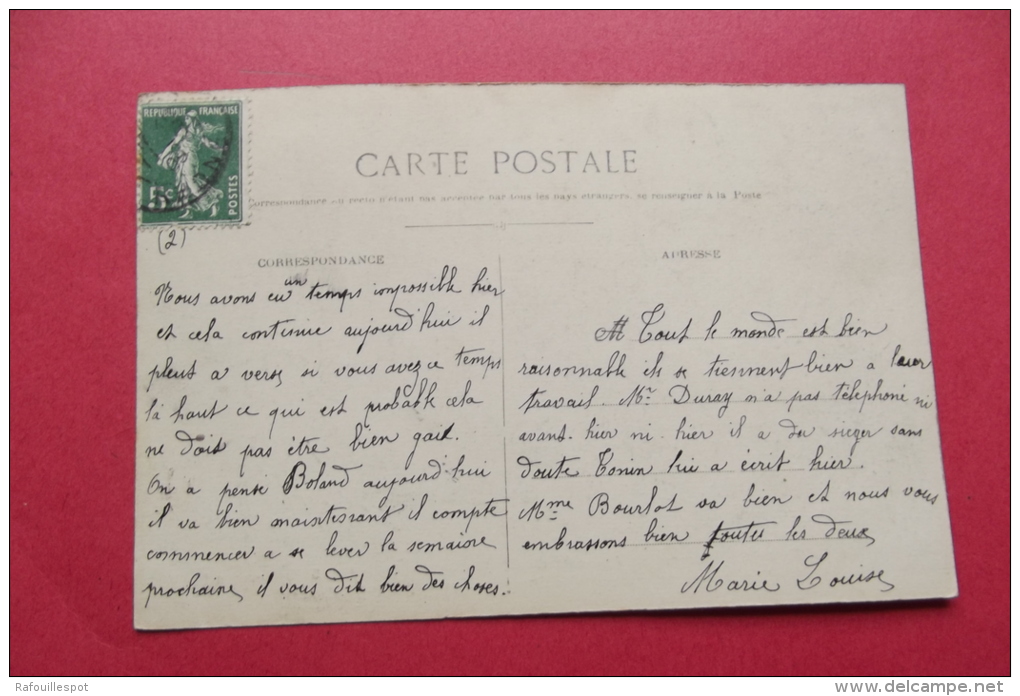 REPUBLIQUE FRANÇAISE
5c
POSTES
CARTE POSTALE
Correspondance au recto n'étant pas acceptée par tous les pays étrangers, se renseigner à la Poste
(2)
CORRESPONDANCE
ADRESSE
Nous avons eu un temps impossible hier
et cela continue aujourd'hui il
pleut a verse si vous avez ce temps
là haut ce qui est probable cela
ne doit pas être bien gai.
On a pensé Boland aujourd'hui
il va bien maintenant il compte
commencer a se lever la semaine
prochaine, il vous dit bien des choses.
Tout le monde est bien
raisonnable ils se tiennent bien a leur
travail. Mr Duray n'a pas téléphoné ni
avant-hier ni hier il a du sieger sans
doute Tonin lui a écrit hier.
Mme Bourlot va bien et nous vous
embrassons bien toutes les deux
Marie Louise
Rafouillespot
www.delcampe.net